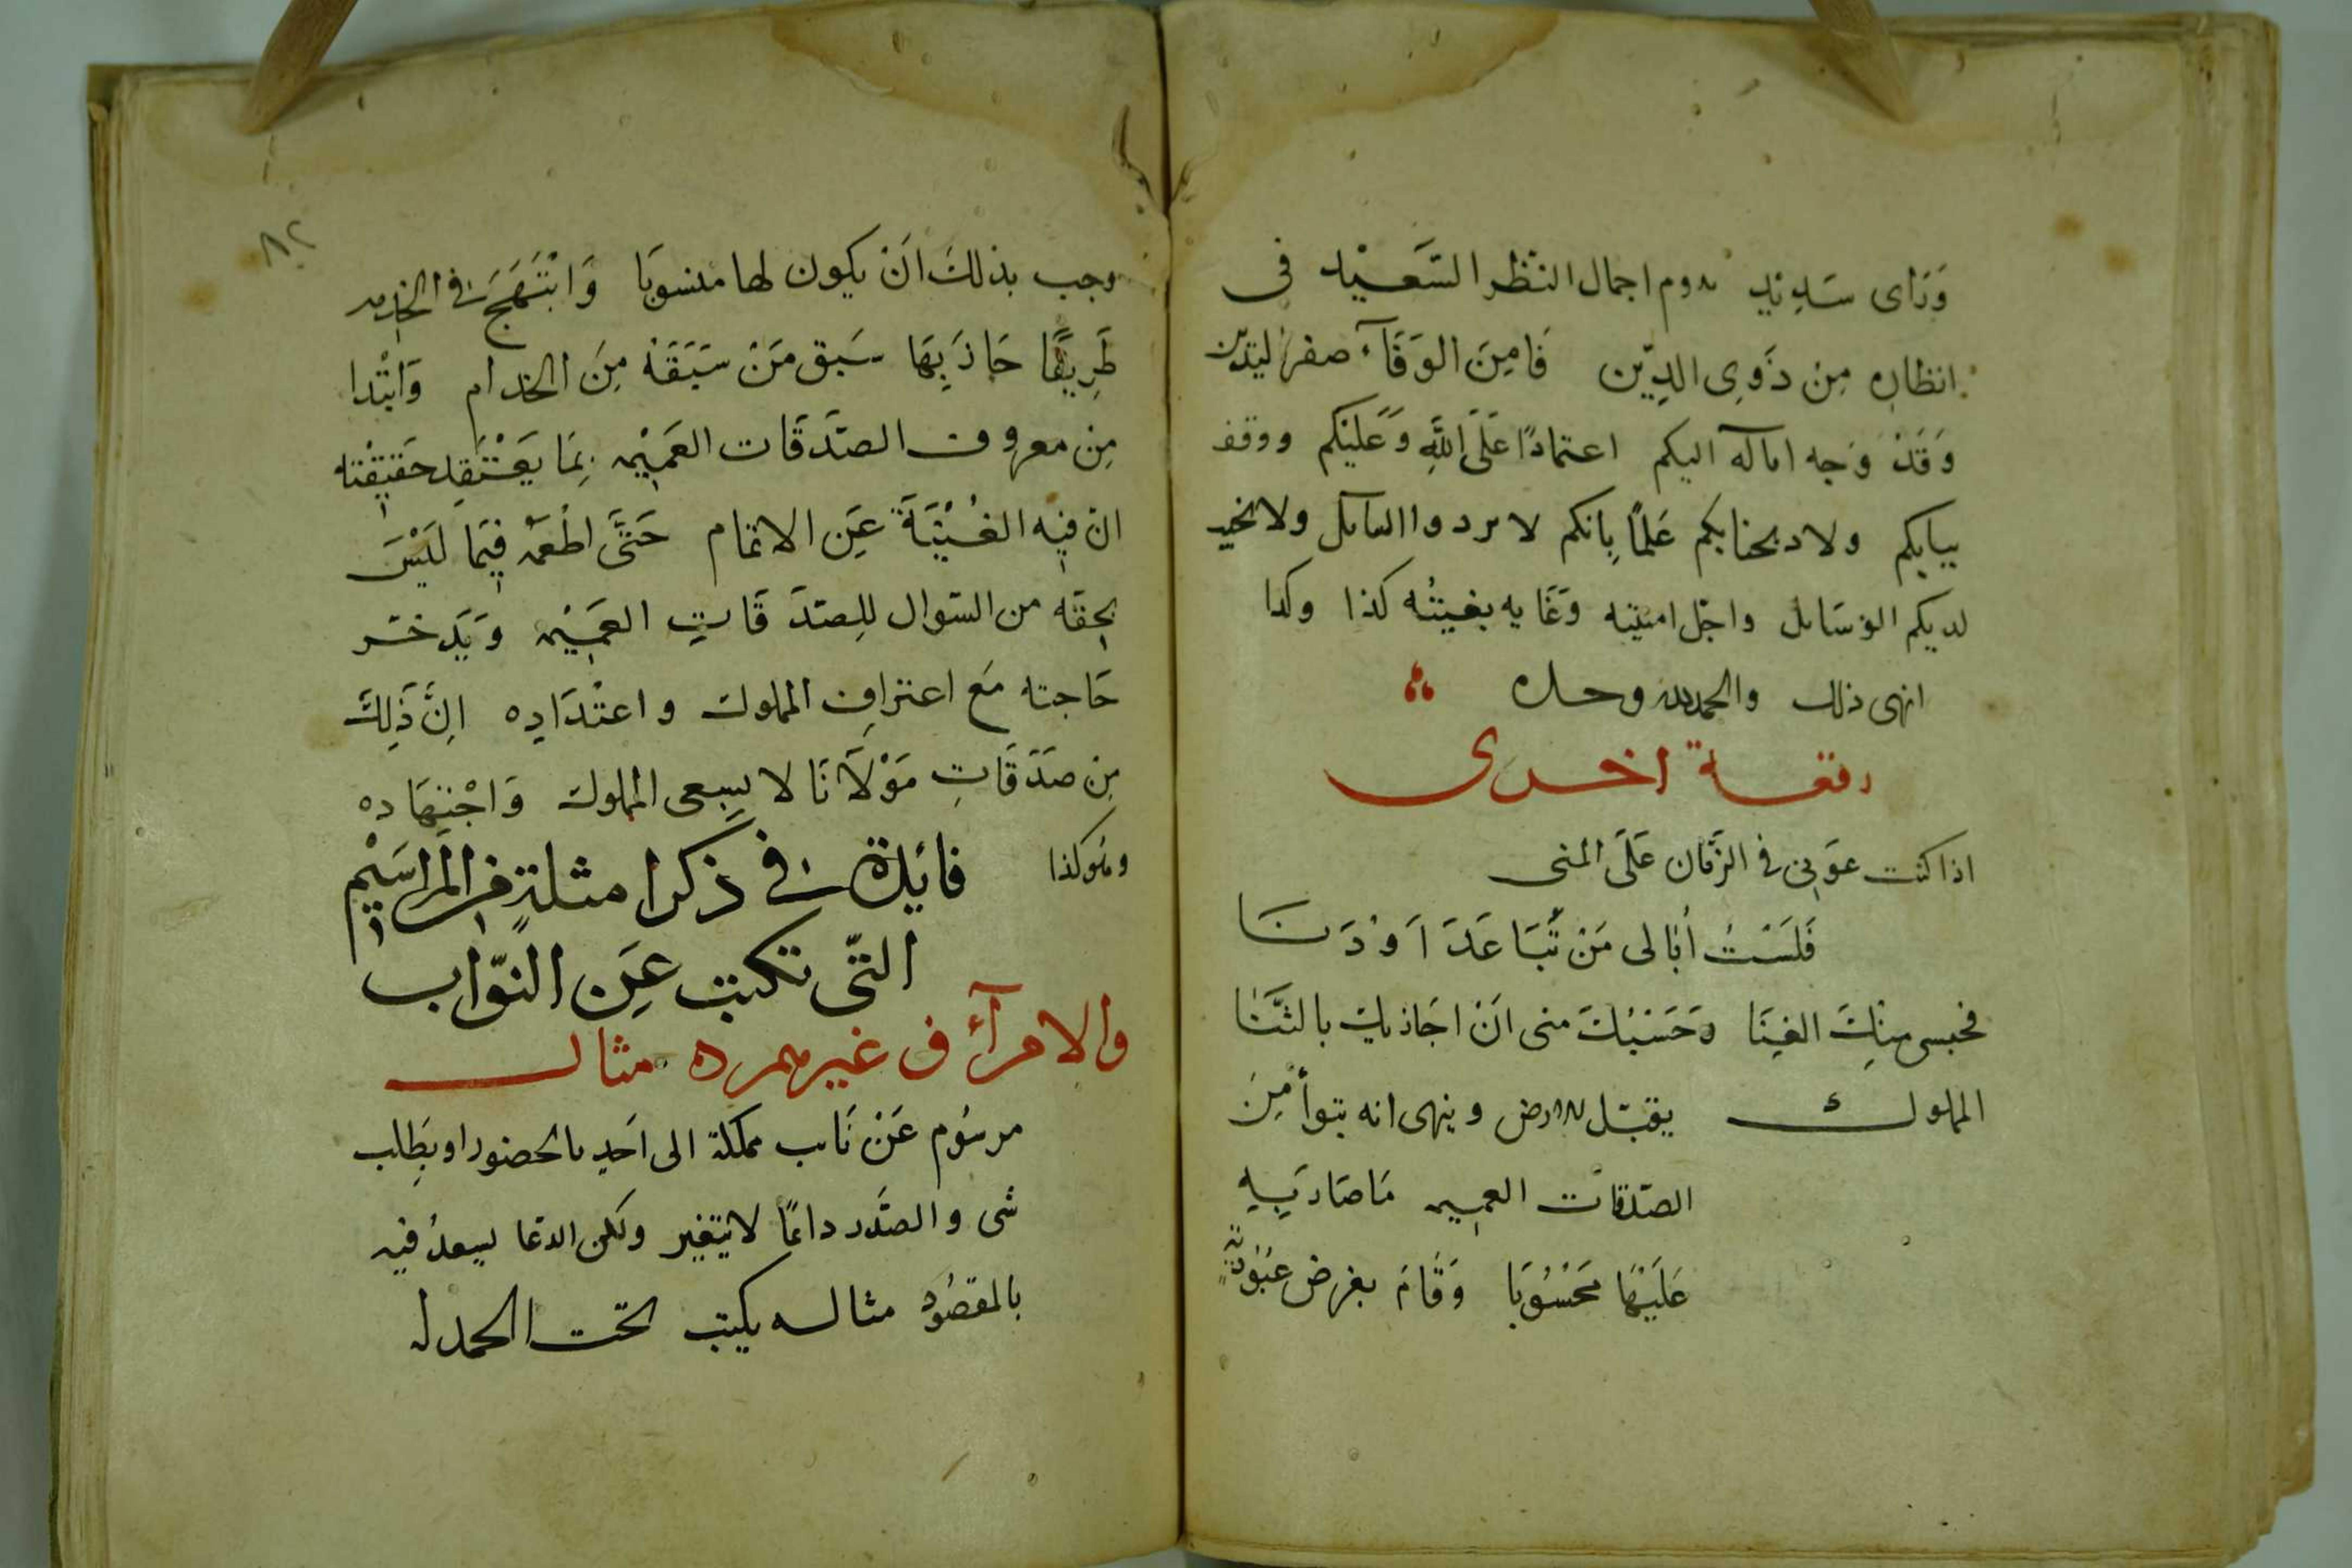 وَرَاى سَدِيْدٍ يروم اجمال النظر السَّعِيْد فى
انظاره مِنْ ذَوِى الدِّيْن فَامِنَ الوَفَآء صفر اليَدَيْن
وَقَدْ وَجه اماله اليكم اعتمادًا عَلَى اللَّهِ وَعَلَيْكم ووقف
ببابكم ولاد بجنابكم عَلمًا بِانكم لا تردوا السايل ولا تخيب
لديكم الوسَايل واجل امنيته وَغَايه بغيته كذا وكذا
انهى ذلك والحمد لله وحده
رقعة اخرى
اذا كنت عوَنى فى الزَّمَان عَلَى المنى
فَلَسْتُ اُبَالى مَنْ تَبَاعَدَ اَوْ دَنَا
فحبسى مِنكَ الغِنَا وَحَسْبُكَ منى اَنْ اجَاذيك بالثَّنَا
المملوك يقبّل الارض وينهى انه تبوأ مِنَ
الصّدقات العميمه مَا صَارَ بِهِ
عَلَيْهَا مَحْسُوبَا وَقَامَ بفرض عبُوديّة
٨٢
وجب بذلك اَنْ يكون لها منسوبَا وَابْتَهَجَ فى الخدمه
طَرِيقًا حَاذَ بِهَا سَبق مَنْ سَبَقَهُ مِنَ الخدام وَابْتَدا
مِن معروف الصّدَقَات العَمِيْمه بِمَا يَعْتَقِد حَقيْقته
ان فيه الغُنْيَةَ عَن الاتمام حَتَّى اطْعَمْه فيمَا لَيْسَ
بحقه من السّوال للِصّدَقَاتِ العَمِيْمه وَيَدخّر
حَاجته مَعَ اعترافِ المملوك واعتْدَادِه اِنَّ ذَلِكَ
مِن صَدَقَاتِ مَوْلَانَا لا بِسِعى المملوك وَاجْتِهَاده
وهُو كذا فائدة فى ذكر امثلةٍ مِن المراسَيْم
التّى تكتب عَن النوّاب
والامرآء فى غير مصره مثال
مرسُوم عَنْ نَايب مملكة الى اَحَدٍ بالحضور او بِطلب
شى والصَّدر دائمًا لا يتغير ولكن الدعَا يبعدُ فيه
بالمقصُود مثاله يكتب تحت الحمد له